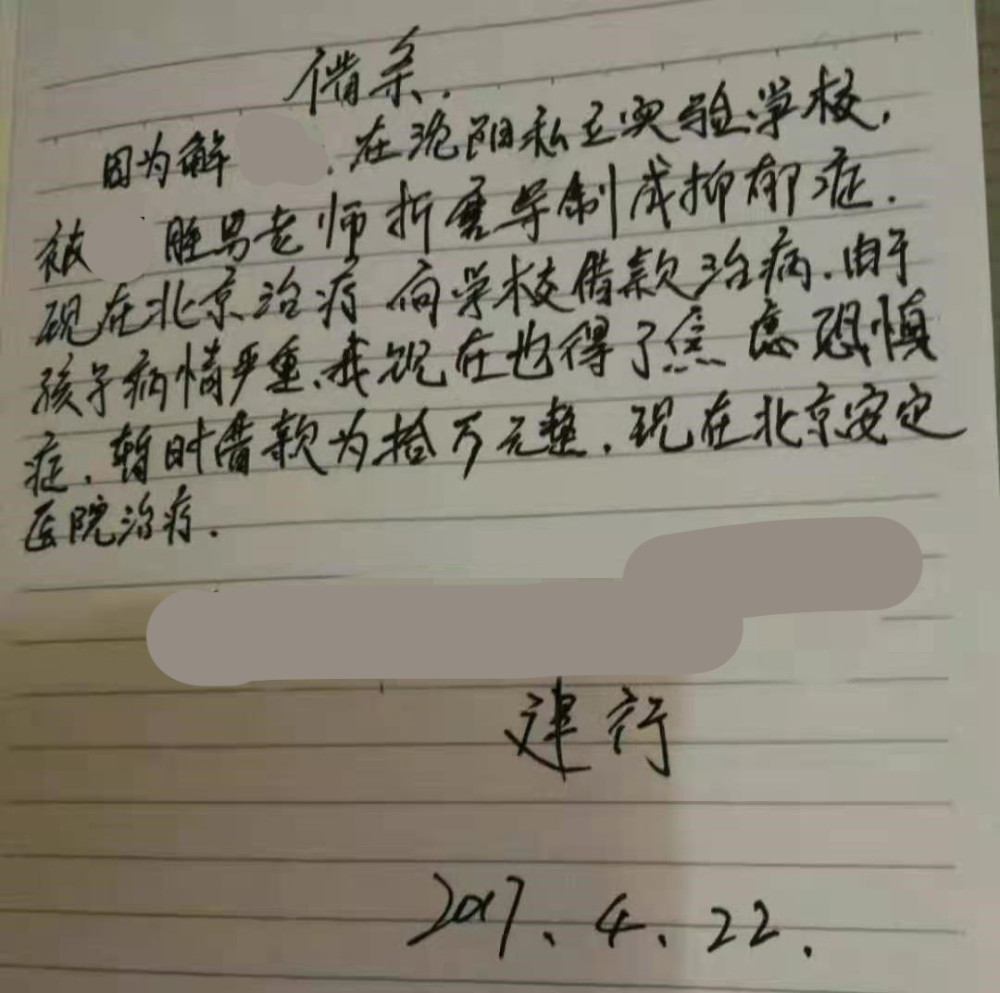 借条.
因为解 .在沈阳私立实验学校,
被 胜男老师折磨导制成抑郁症.
现在北京治疗向学校借款治病.由于
孩子病情严重、我现在也得了焦虑恐慎
症.暂时借款为拾万元整.现在北京安定
医院治疗.
建行
2017、4、22.